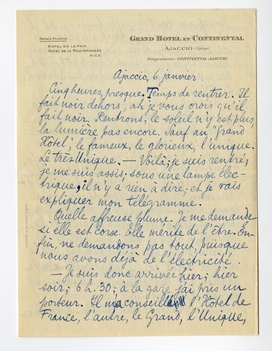 GRAND HOTEL ET CONTINENTAL
AJACCIO (Corse)
HOTEL DE LA PAIX
HOTEL DE LA MÉDITERRANÉE
NICE
Télégrammes: CONTINENTAL-AJACCIO
Ajaccio, 6 janvier.
Cinq heures, presque. Temps de rentrer. Il
fait noir dehors, ah je vous crois qu'il
fait noir. Rentrons, le soleil n'y est plus
la lumière pas encore. Sauf au "Grand
Hôtel", le fameux, le glorieux, l'unique.
Le très Unique. — Voilà; je suis rentré,
je me suis assis, sous une lampe élec-
trique, il n'y a rien à dire; et je vais
expliquer mon télégramme.
Quelle affreuse plume. Je me demande
si elle est corse. Elle mérite de l'être. En-
fin, ne demandons pas tout, puisque
nous avons déjà de l'électricité.
— Je suis donc arrivé hier; hier
soir; 6 h. 30; à la gare j'ai pris un
porteur. Il m'a conseillé l'Hôtel de
France, l'autre, le Grand, l'Unique,